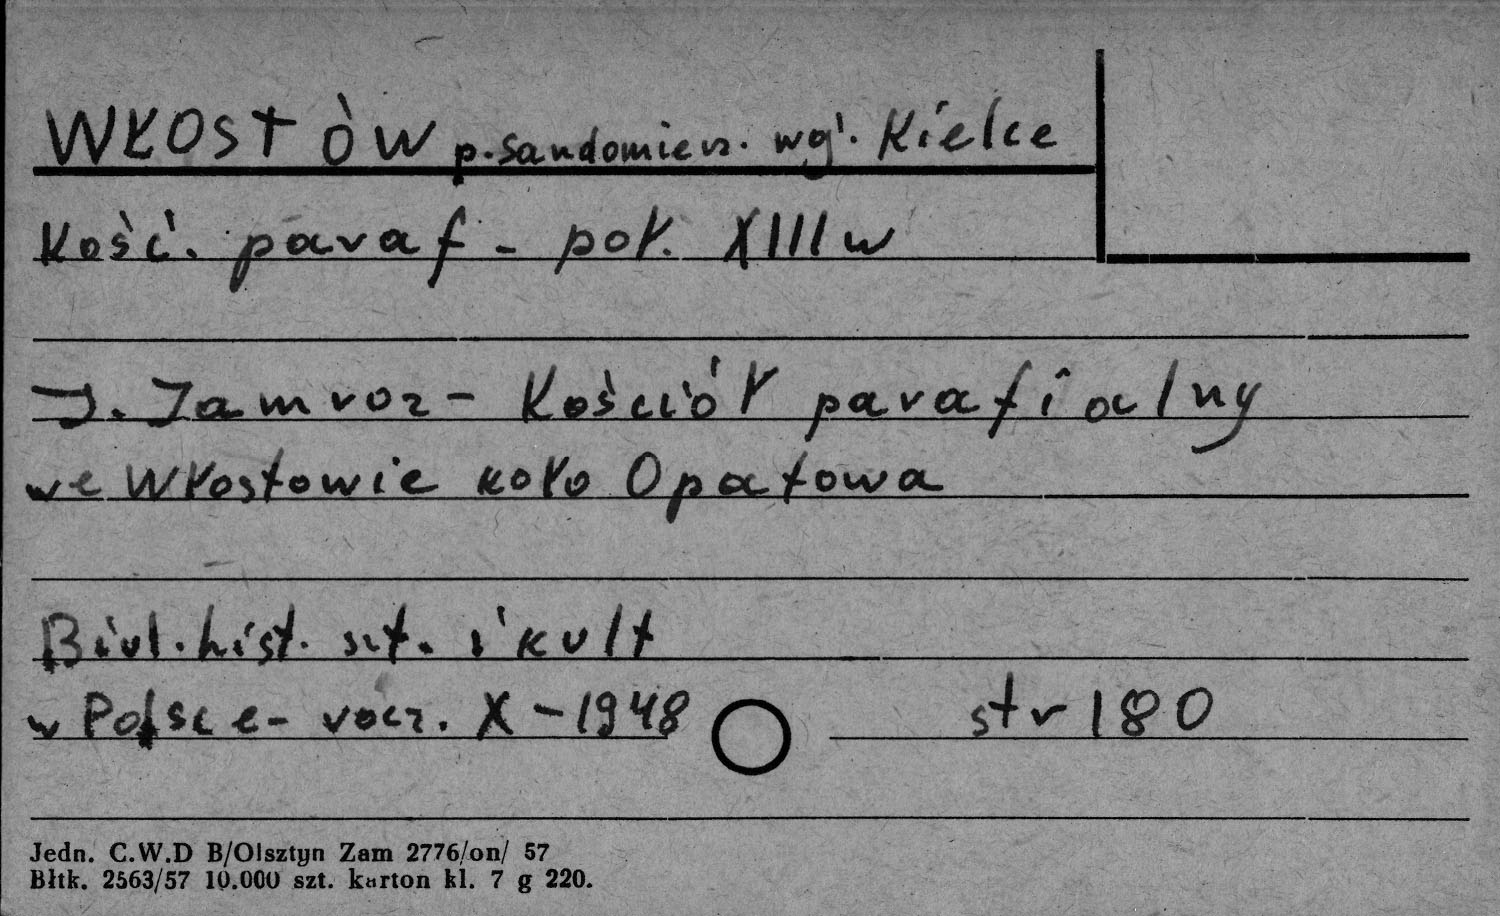 WŁOSTÓW p. Sandomierz. woj. Kielce
Kość. paraf - poł. XIII w
J. Jamroz - Kościół parafialny
we Włostowie koło Opatowa
Biul. hist. szt. i kult
w Polsce - rocz. X - 1948 str 180
Jedn. C.W.D B/Olsztyn Zam 2776/on/ 57
Błtk. 2563/57 10.000 szt. karton kl. 7 g 220.